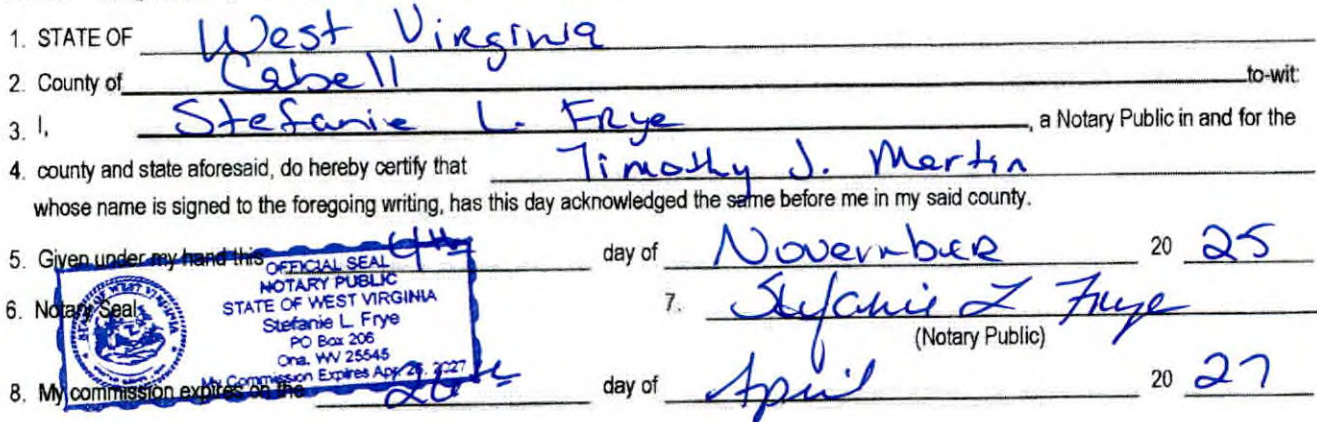 1. STATE OF West Virginia
2. County of Cabell to-wit:
3. I, Stefanie L. Frye, a Notary Public in and for the
4. county and state aforesaid, do hereby certify that Timothy J. Martin
whose name is signed to the foregoing writing, has this day acknowledged the same before me in my said county.
5. Given under my hand this 4th day of November 20 25
OFFICIAL SEAL
NOTARY PUBLIC
STATE OF WEST VIRGINIA
Stefanie L. Frye
PO Box 206
Ona, WV 25545
My Commission Expires Apr. 26, 2027
6. Notary Seal
7. Stefanie L Frye
(Notary Public)
8. My commission expires on the 26th day of April 20 27